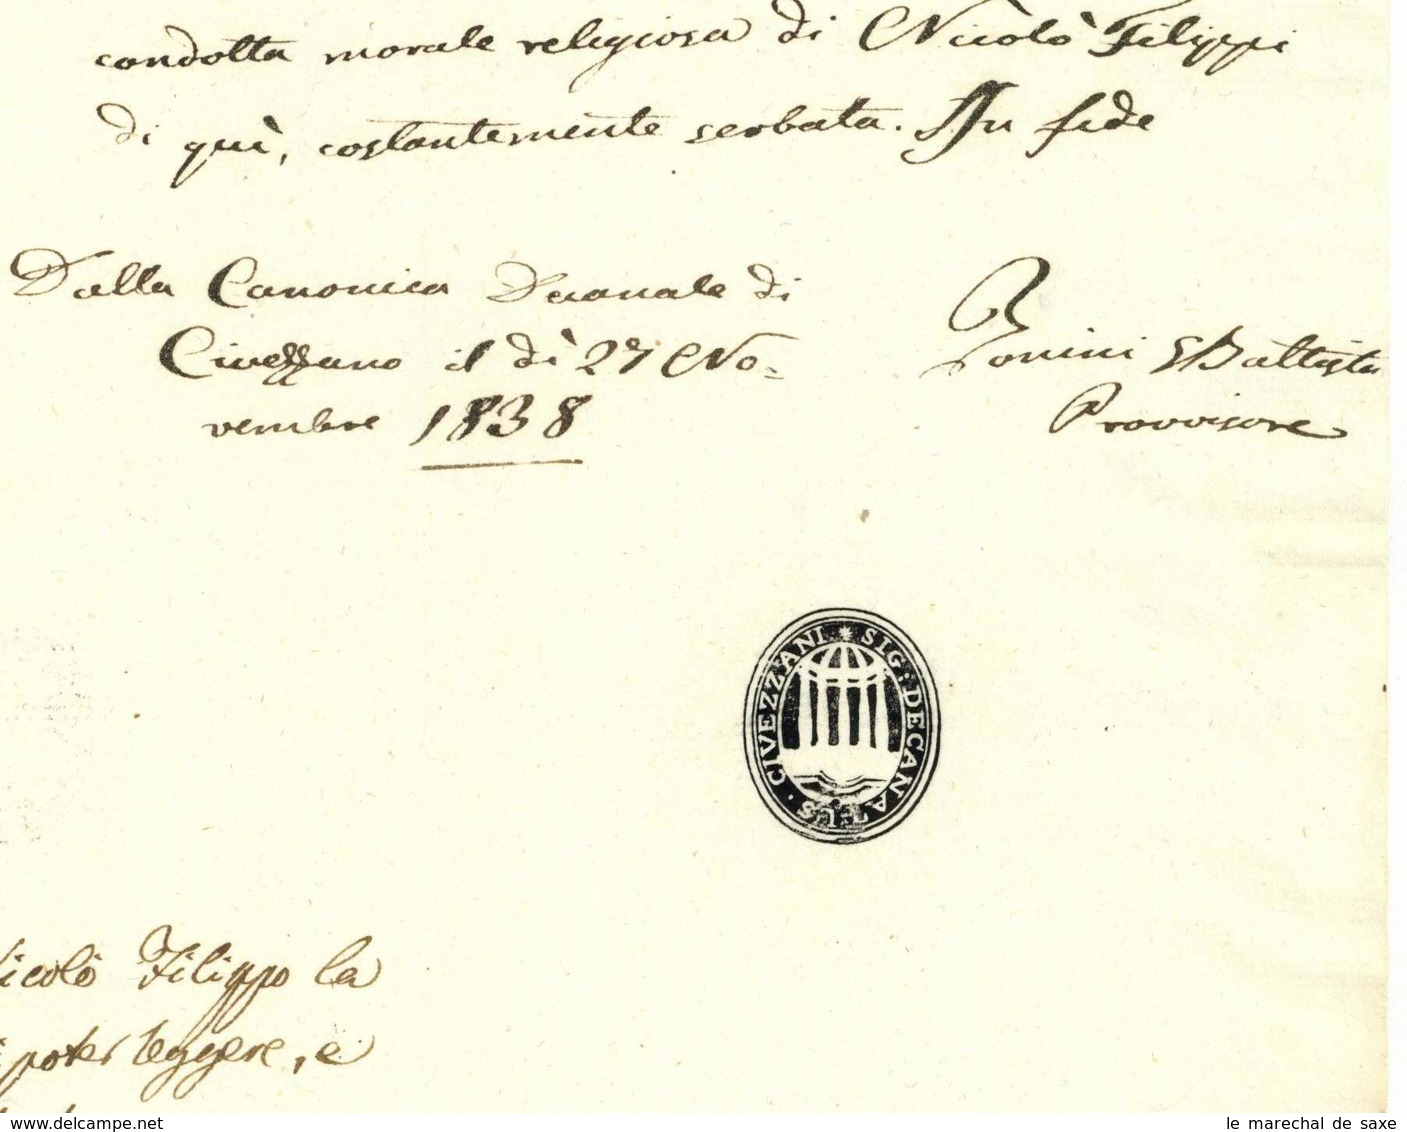 condotta morale religiosa di Nicolò Filippi
di quì, costantemente serbata. In fede
Dalla Canonica Decanale di
Civezzano il dì 27 No=
vembre 1838
Tonini GBattista
Provvisore
SIG: DECANATUS · CIVEZZANI
icolò Filippo la
poter leggere, e
www.delcampe.net
le marechal de saxe